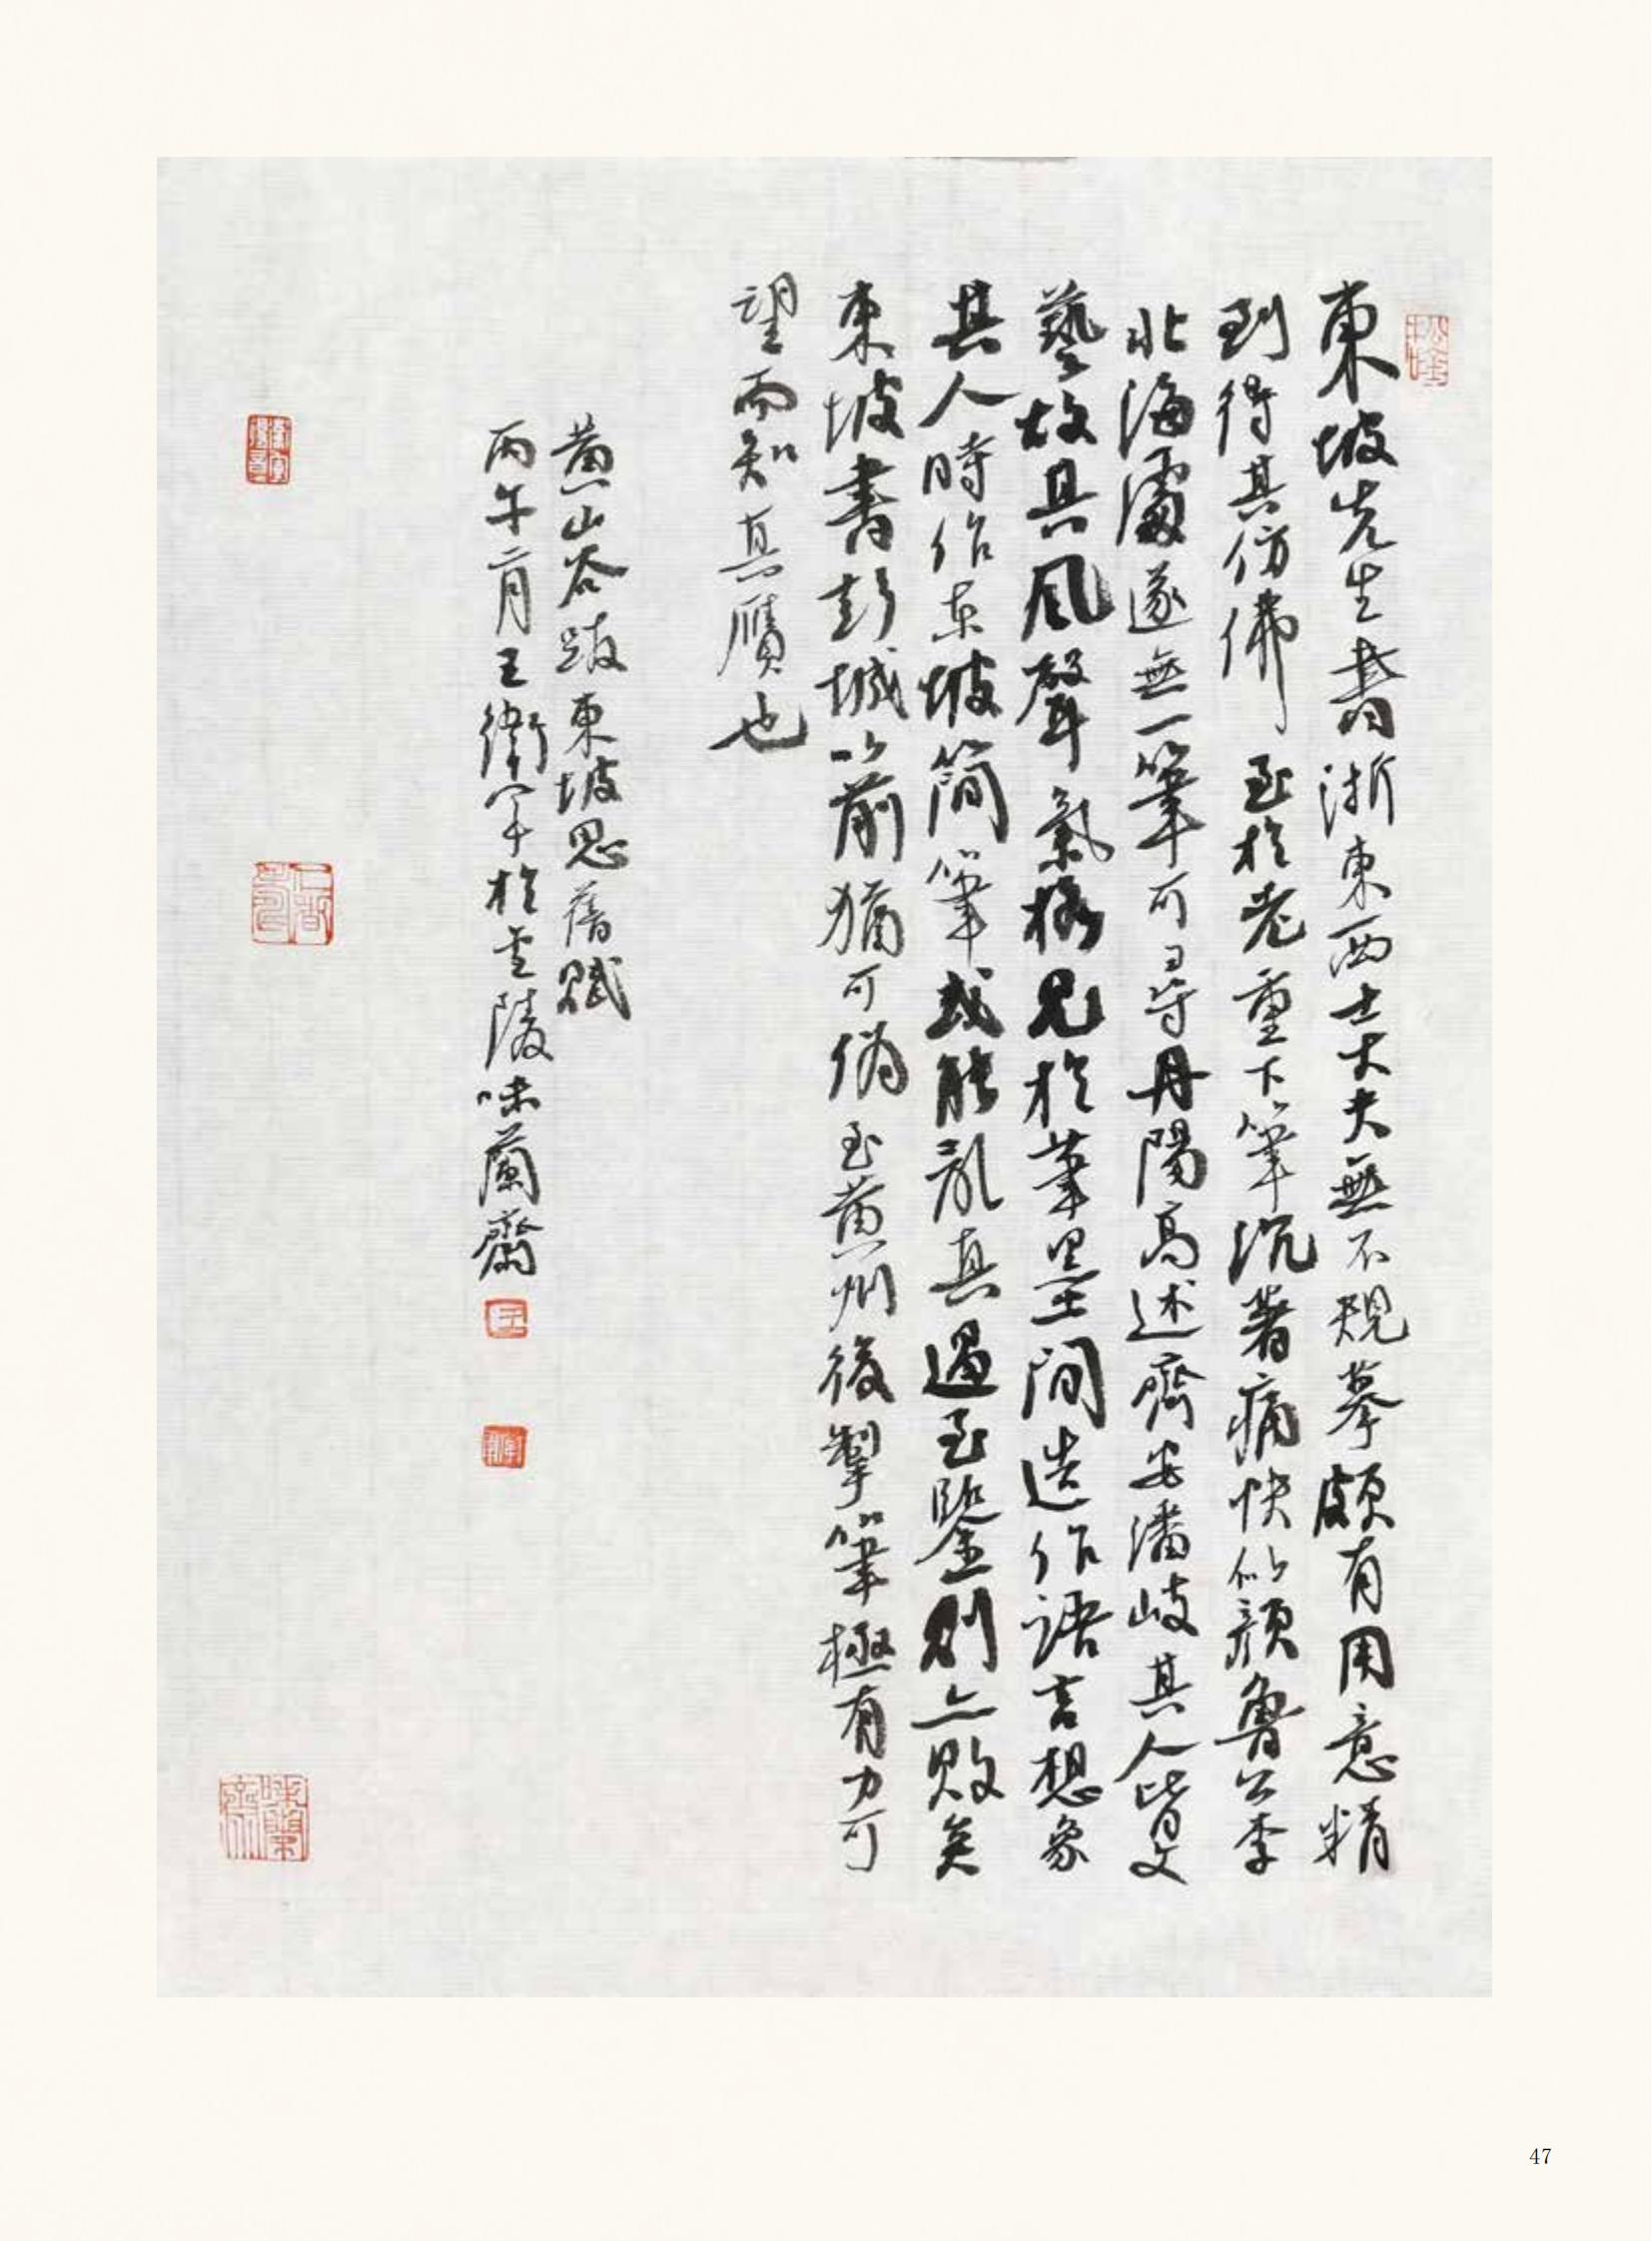 東坡先生書浙東西士大夫無不規摹頗有用意精
到得其仿佛至於老重下筆沉著痛快似顏魯公李
北海處遂無一筆可尋丹陽高述齊安潘岐其人皆文
藝故其風聲氣格見於筆墨間造作語言想象
其人時作東坡簡筆或能亂真遇至鑒則亦敗矣
東坡書彭城以前猶可偽至黃州後掣筆極有力可
望而知真贗也
黃山谷跋東坡思舊賦
丙午二月王衛軍於金陵味蘭齋
47